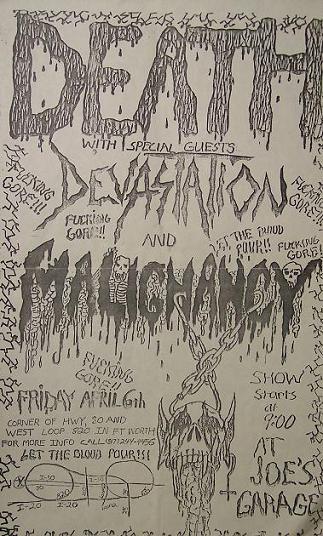 DEATH
WITH SPECIAL GUESTS
DEVASTATION
FUCKING
GORE!!!
FUCKING
GORE!!
FUCKING
GORE!!!
AND
LET THE BLOOD
POUR!!
FUCKING
GORE!
MALIGNANCY
FUCKING
GORE!!
FRIDAY APRIL 6th
CORNER OF HWY. 80 AND
WEST LOOP 820 IN FT WORTH
FOR MORE INFO CALL
LET THE BLOOD POUR!!!
I-30
I-20
I-20
820
SHOW
Starts
at
9:00
AT
JOE'S
GARAGE